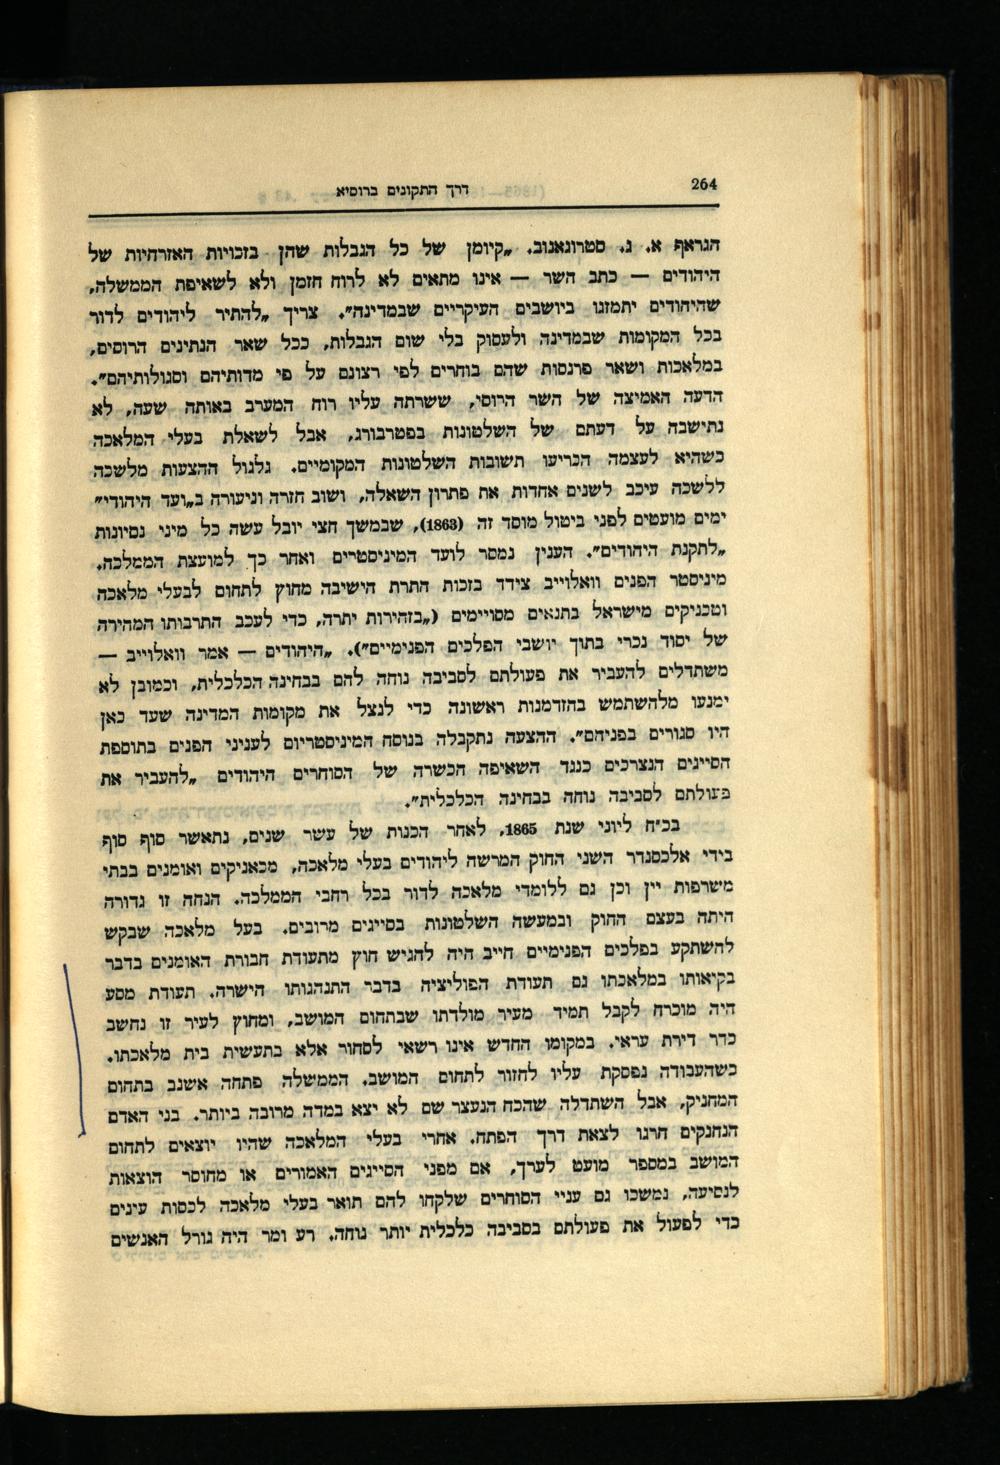 264
דרך התקונים ברוסיא
הגראף א. ג. סטרוגאנוב. „קיומן של כל הגבלות שהן בזכויות האזרחיות של
היהודים — כתב השר — אינו מתאים לא לרוח הזמן ולא לשאיפת הממשלה,
שהיהודים יתמזגו ביושבים העיקריים שבמדינה". צריך „להתיר ליהודים לדור
בכל המקומות שבמדינה ולעסוק בלי שום הגבלות, ככל שאר הנתינים הרוסים,
במלאכות ושאר פרנסות שהם בוחרים לפי רצונם על פי מדותיהם וסגולותיהם".
הדעה האמיצה של השר הרוסי, ששרתה עליו רוח המערב באותה שעה, לא
נתישבה על דעתם של השלטונות בפטרבורג, אבל לשאלת בעלי המלאכה
כשהיא לעצמה הכריעו תשובות השלטונות המקומיים. גלגול ההצעות מלשכה
ללשכה עיכב לשנים אחדות את פתרון השאלה, ושוב חזרה וניעורה ב„ועד היהודי"
ימים מועטים לפני ביטול מוסד זה (1863), שבמשך חצי יובל עשה כל מיני נסיונות
„לתקנת היהודים". הענין נמסר לועד המיניסטרים ואחר כך למועצת הממלכה.
מיניסטר הפנים וואלוייב צידד בזכות התרת הישיבה מחוץ לתחום לבעלי מלאכה
וטכניקים מישראל בתנאים מסויימים („בזהירות יתרה, כדי לעכב התרבותו המהירה
של יסוד נכרי בתוך יושבי הפלכים הפנימיים"). „היהודים — אמר וואלוייב —
משתדלים להעביר את פעולתם לסביבה נוחה להם בבחינה הכלכלית, וכמובן לא
ימנעו מלהשתמש בהזדמנות ראשונה כדי לנצל את מקומות המדינה שעד כאן
היו סגורים בפניהם". ההצעה נתקבלה בנוסח המיניסטריום לעניני הפנים בתוספת
הסייגים הנצרכים כנגד השאיפה הכשרה של הסוחרים היהודים „להעביר את
פעולתם לסביבה נוחה בבחינה הכלכלית".
בכ"ח ליוני שנת 1865, לאחר הכנות של עשר שנים, נתאשר סוף סוף
בידי אלכסנדר השני החוק המרשה ליהודים בעלי מלאכה, מכאניקים ואומנים בבתי
משרפות יין וכן גם ללומדי מלאכה לדור בכל רחבי הממלכה. הנחה זו גדורה
היתה בעצם החוק ובמעשה השלטונות בסייגים מרובים. בעל מלאכה שבקש
להשתקע בפלכים הפנימיים חייב היה להגיש חוץ מתעודת חבורת האומנים בדבר
בקיאותו במלאכתו גם תעודת הפוליציה בדבר התנהגותו הישרה. תעודת מסע
היה מוכרח לקבל תמיד מעיר מולדתו שבתחום המושב, ומחוץ לעיר זו נחשב
כדר דירת עראי. במקומו החדש אינו רשאי לסחור אלא בתעשית בית מלאכתו.
כשהעבודה נפסקת עליו לחזור לתחום המושב. הממשלה פתחה אשנב בתחום
המחניק, אבל השתדלה שהכח הנעצר שם לא יצא במדה מרובה ביותר. בני האדם
הנחנקים חרגו לצאת דרך הפתח. אחרי בעלי המלאכה שהיו יוצאים לתחום
המושב במספר מועט לערך, אם מפני הסייגים האמורים או מחוסר הוצאות
לנסיעה, נמשכו גם עניי הסוחרים שלקחו להם תואר בעלי מלאכה לכסות עינים
כדי לפעול את פעולתם בסביבה כלכלית יותר נוחה. רע ומר היה גורל האנשים